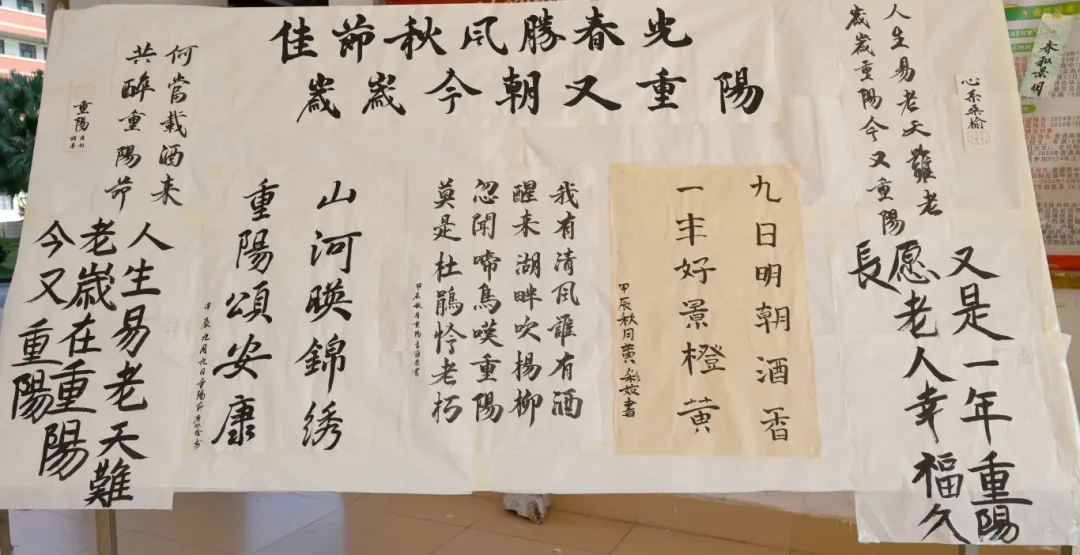 佳莭秋风勝春光
嵗嵗今朝又重陽
人生易老天難老
嵗嵗重陽今又重陽
心系桑榆
又是一年重陽
愿老人幸福久
長
九日明朝酒香
一年好景橙黄
甲辰秋月黄彩書
我有清风誰有酒
醒来湖畔吹楊柳
忽闻啼鳥嘆重陽
莫是杜鵑怜老朽
甲辰秋月重陽書
山河暎錦绣
重陽頌安康
甲辰九月九日重陽莭
何當载酒来
共醉重陽莭
重陽
人生易老天難
老歲在重陽
今又重陽